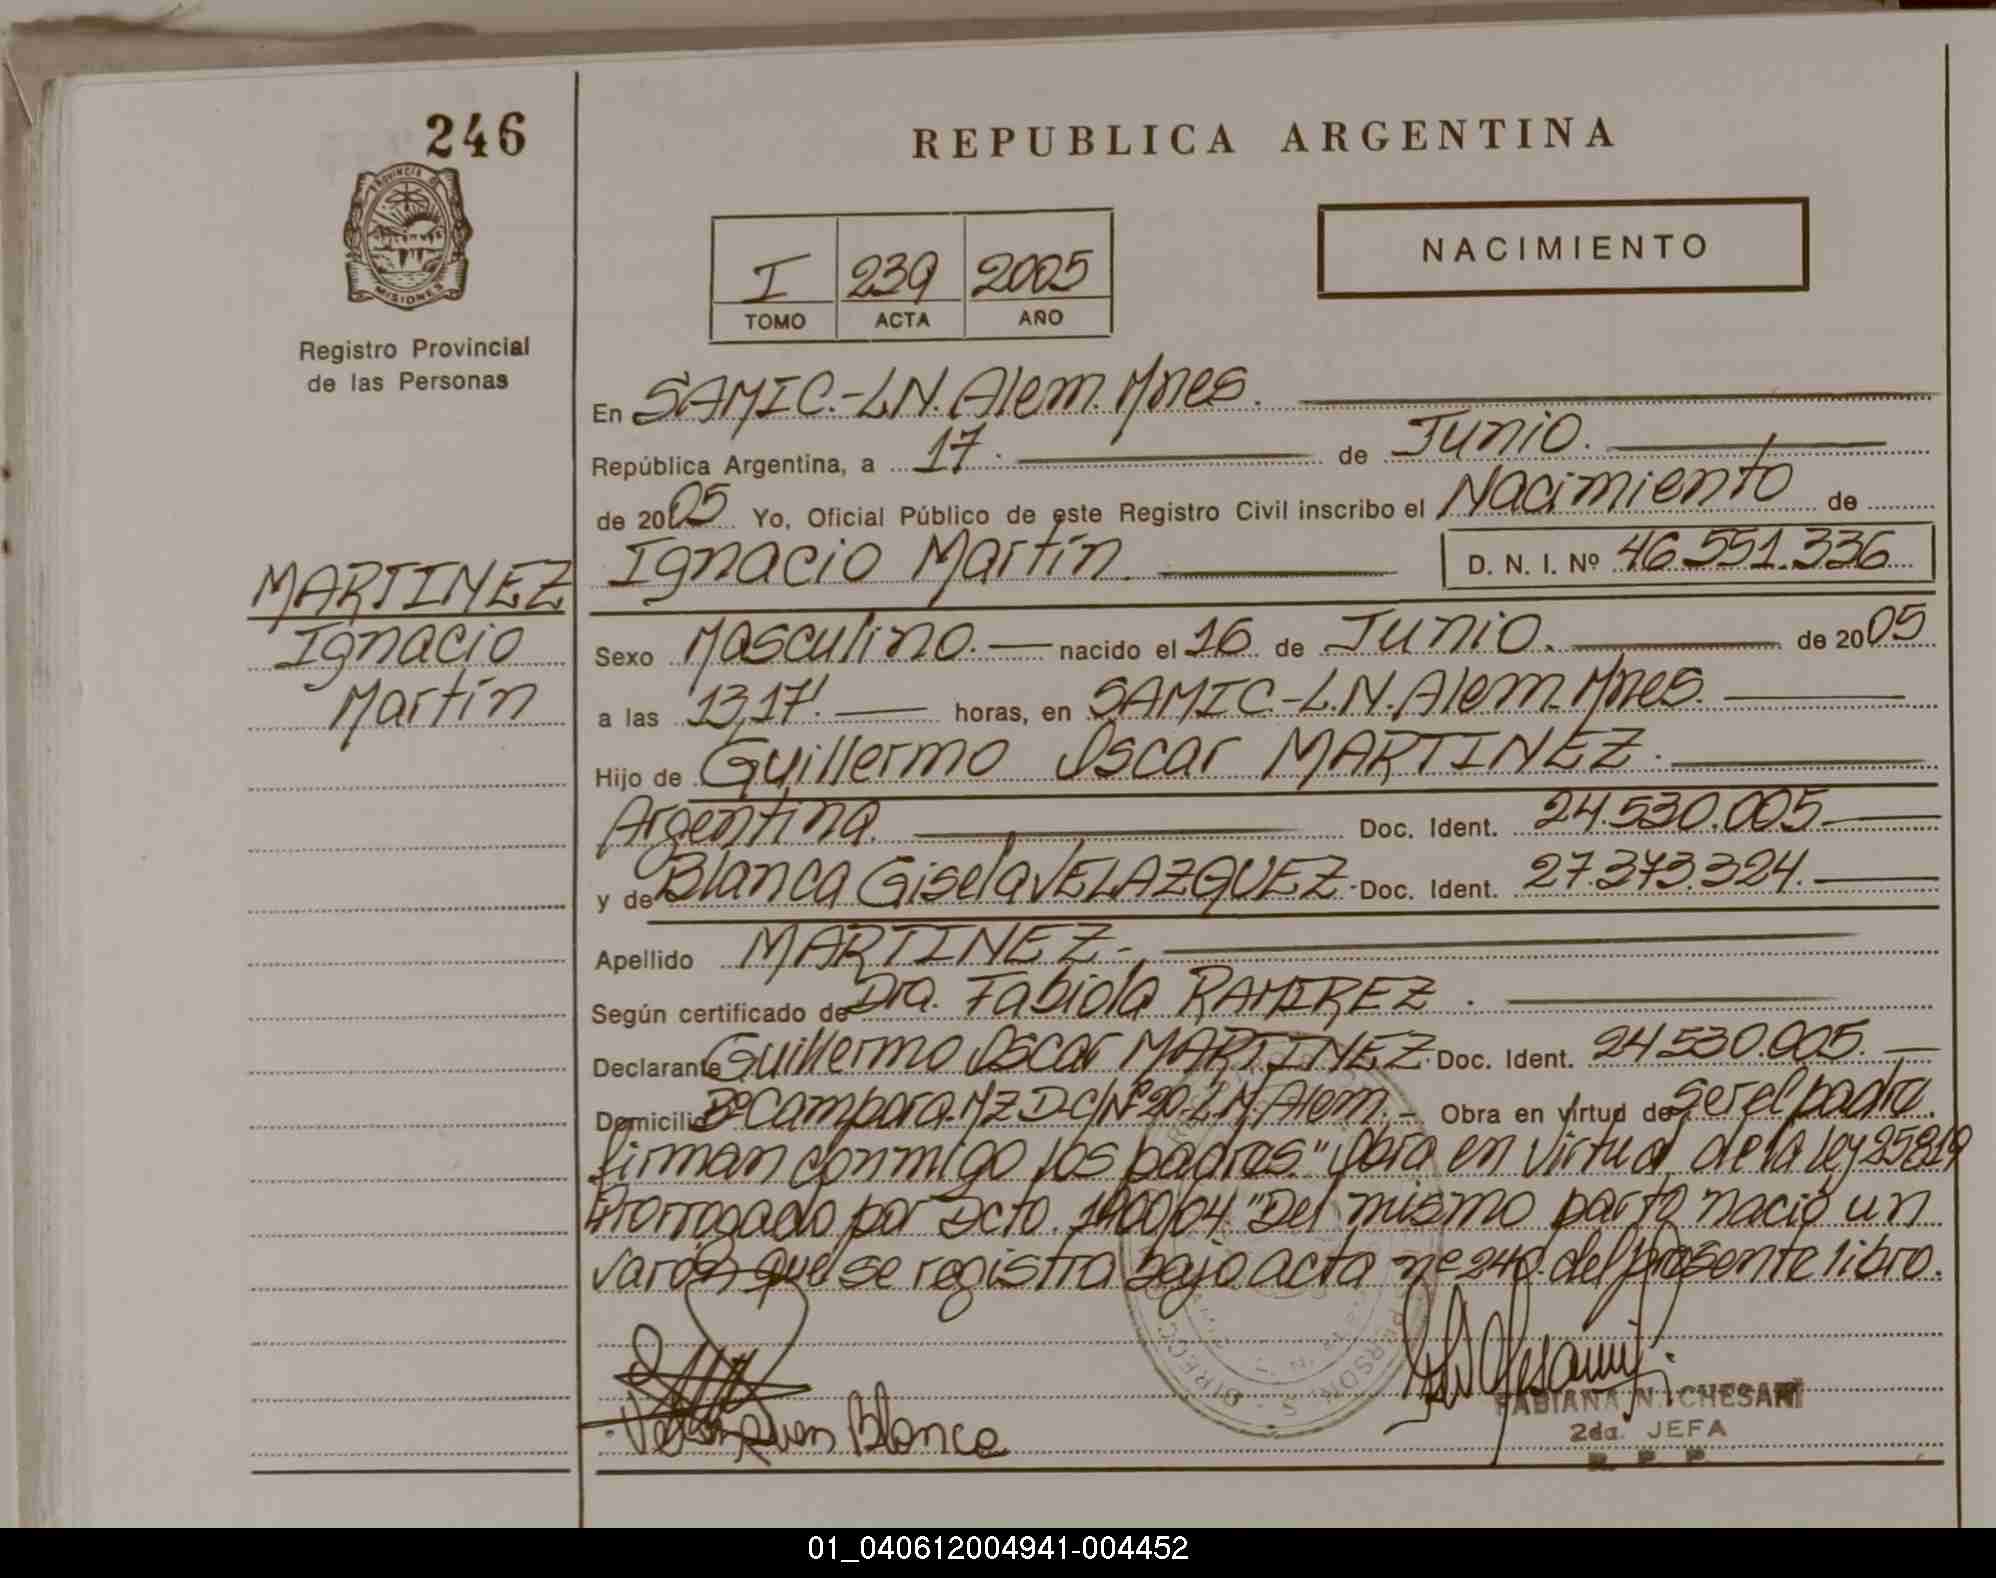 246
REPUBLICA ARGENTINA
PROVINCIA DE
MISIONES
Registro Provincial
de las Personas
NACIMIENTO
I 239 2005
TOMO ACTA AÑO
En SAMIC.-LN. Alem. Mnes.
República Argentina, a 17. de Junio.
de 2005 Yo, Oficial Público de este Registro Civil inscribo el Nacimiento de
Ignacio Martín. D. N. I. Nº 46.551.336
MARTINEZ
Ignacio
Martín
Sexo Masculino. nacido el 16 de Junio. de 2005
a las 13,17'. horas, en SAMIC-L.N. Alem. Mnes.
Hijo de Guillermo Oscar MARTINEZ.
Argentina. Doc. Ident. 24.530.005
y de Blanca Gisela VELAZQUEZ. Doc. Ident. 27.373.324.
Apellido MARTINEZ.
Según certificado de Dra. Fabiola RAMIREZ.
Declarante Guillermo Oscar MARTINEZ. Doc. Ident. 24530.005.
Domicilio Bº Campora. Mz D-C/Nº 20-L.N. Alem. Obra en virtud de ser el padre.
firman conmigo los padres. "Obra en virtud de la ley 25819
Prorrogado por Dcto. 1400/04. "Del mismo parto nació un
varón que se registra bajo acta nº 240. del presente libro.
Blanca
FABIANA N. CHESANI
2da. JEFA
R. P. P.
01_040612004941-004452